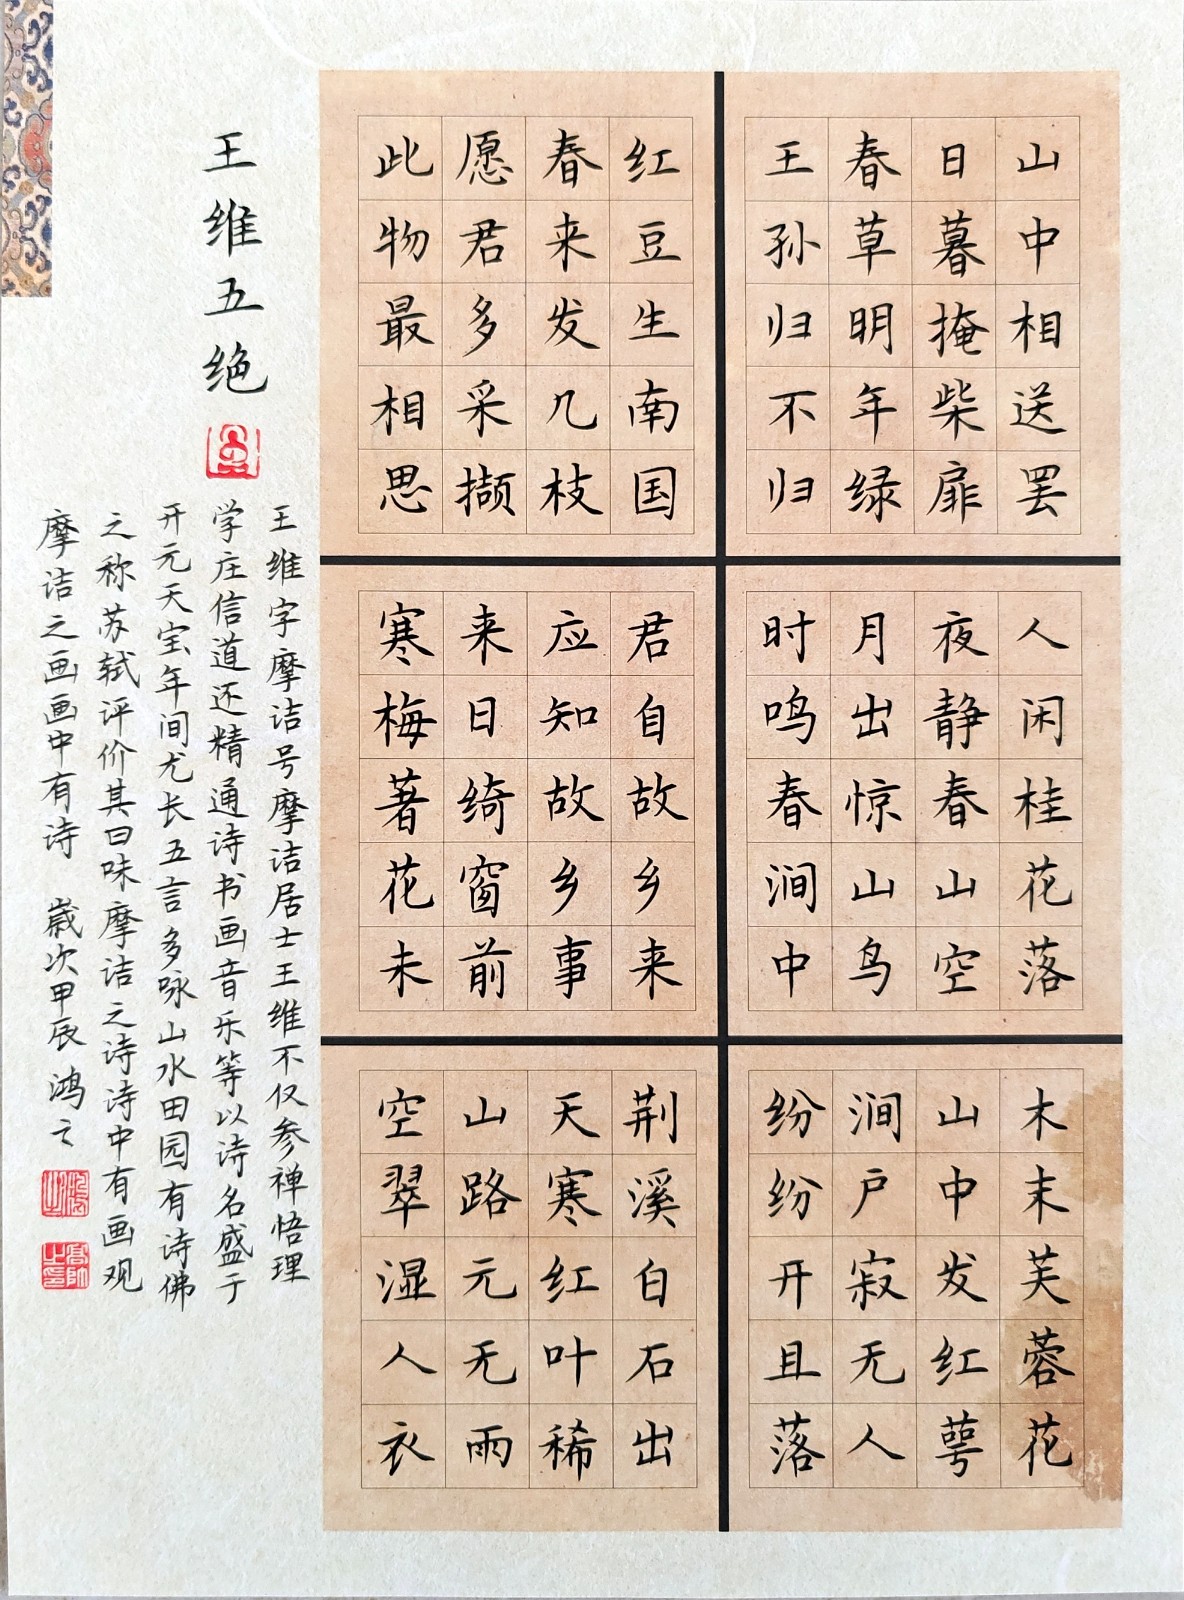 山中相送罢
日暮掩柴扉
春草明年绿
王孙归不归
红豆生南国
春来发几枝
愿君多采撷
此物最相思
人闲桂花落
夜静春山空
月出惊山鸟
时鸣春涧中
君自故乡来
应知故乡事
来日绮窗前
寒梅著花未
木末芙蓉花
山中发红萼
涧户寂无人
纷纷开且落
荆溪白石出
天寒红叶稀
山路元无雨
空翠湿人衣
王维五绝
王维字摩诘号摩诘居士王维不仅参禅悟理
学庄信道还精通诗书画音乐等以诗名盛于
开元天宝年间尤长五言多咏山水田园有诗佛
之称苏轼评价其曰味摩诘之诗诗中有画观
摩诘之画画中有诗 嵗次甲辰 鸿之